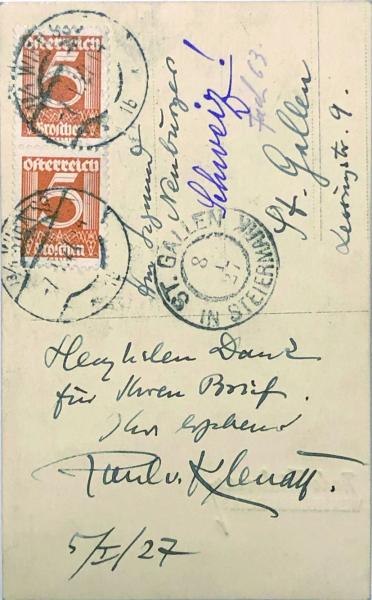 Österreich
5
Groschen
Österreich
5
Groschen
WIEN
16
Herrn Sigmund
Neuburger
Schweiz!
Fach 63
St. Gallen
9.
ST. GALLEN
IN STEIERMARK
Herzlichen Dank
für Ihren Brief.
Ihr ergebener
Paul v. Klenau.
5/I/27